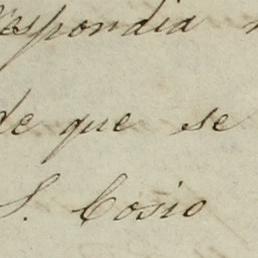 espondia
de que se
S. Cosio